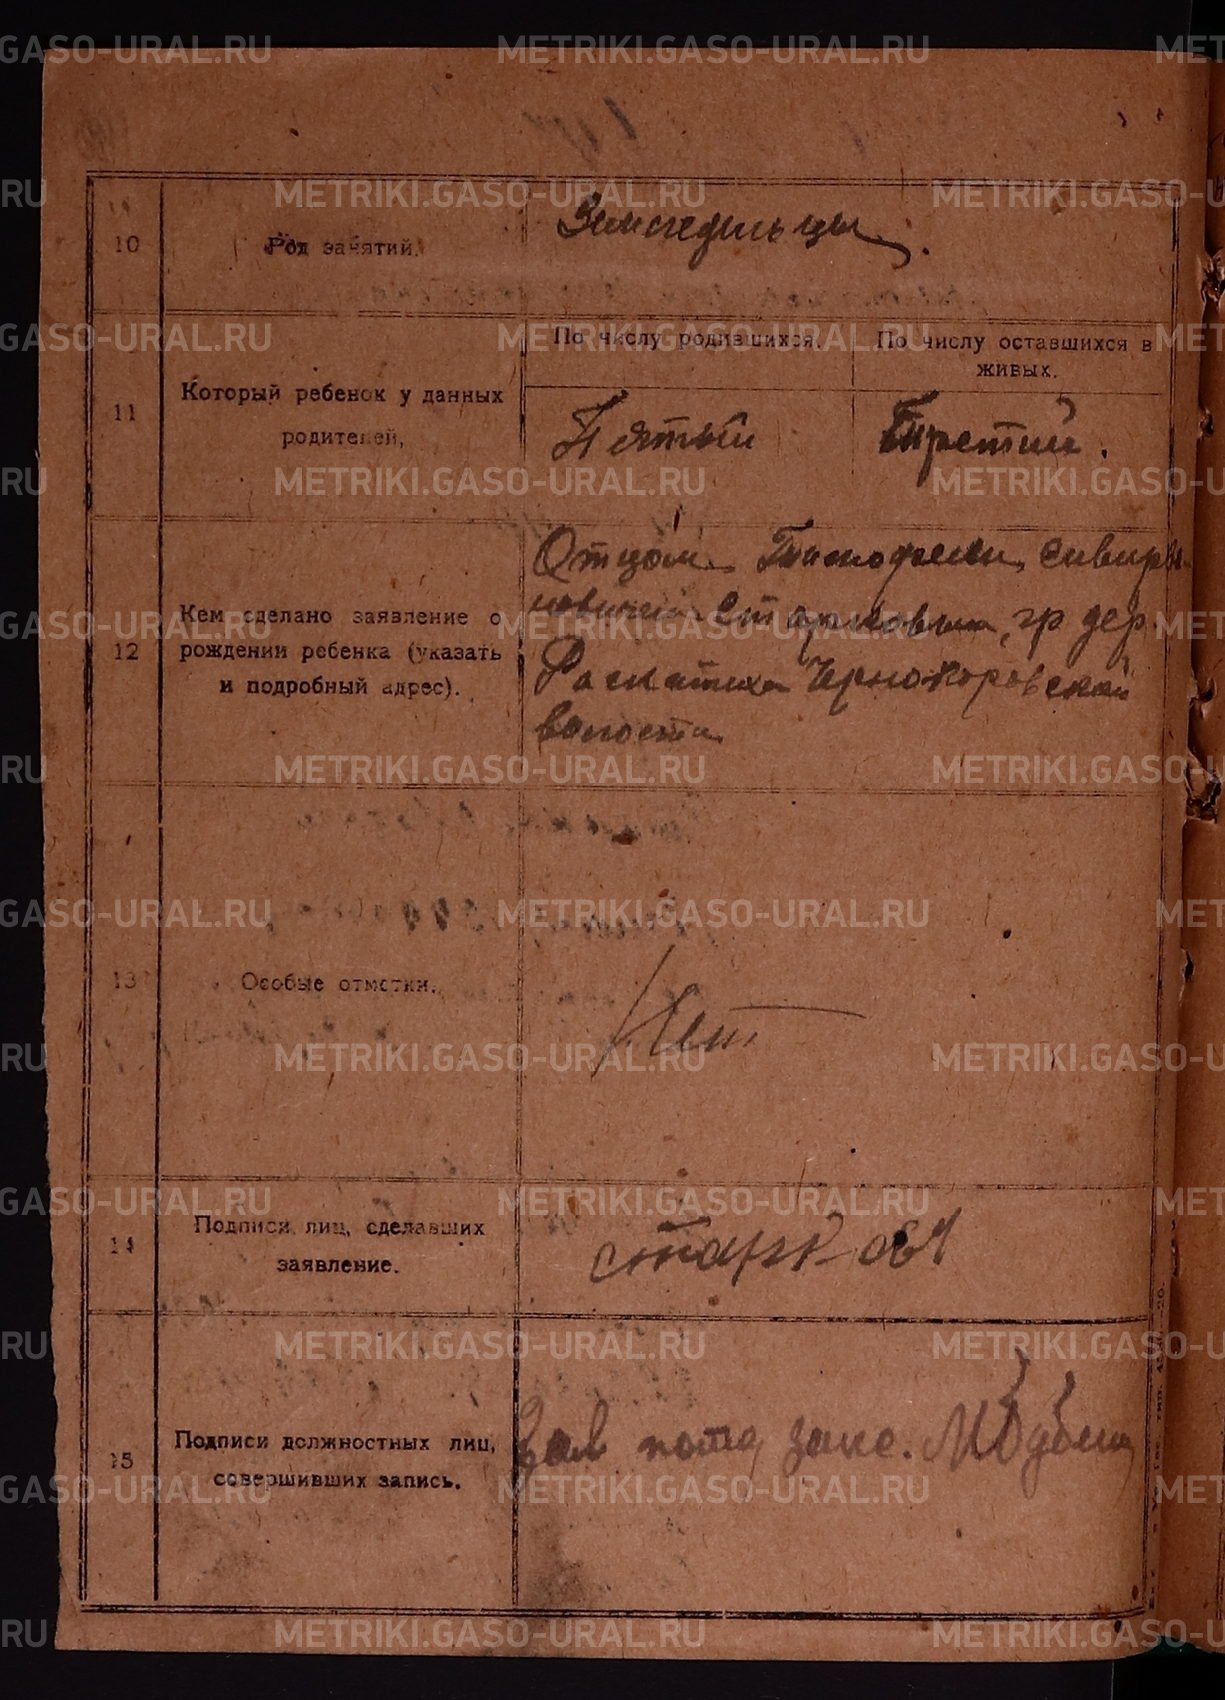 10
Род занятий.
Земледельцы.
11
Который ребенок у данных
родителей,
По числу родившихся.
По числу оставшихся в
живых.
Пятый
Третий.
12
Кем сделано заявление о
рождении ребенка (указать
и подробный адрес).
Отцом
Старковым, гр дер.
Раскатиха Чернокоровской
волости
13
Особые отметки.
Нет
14
Подписи лиц, сделавших
заявление.
Старков
15
Подписи должностных лиц,
совершивших запись.
Зав
METRIKI.GASO-URAL.RU